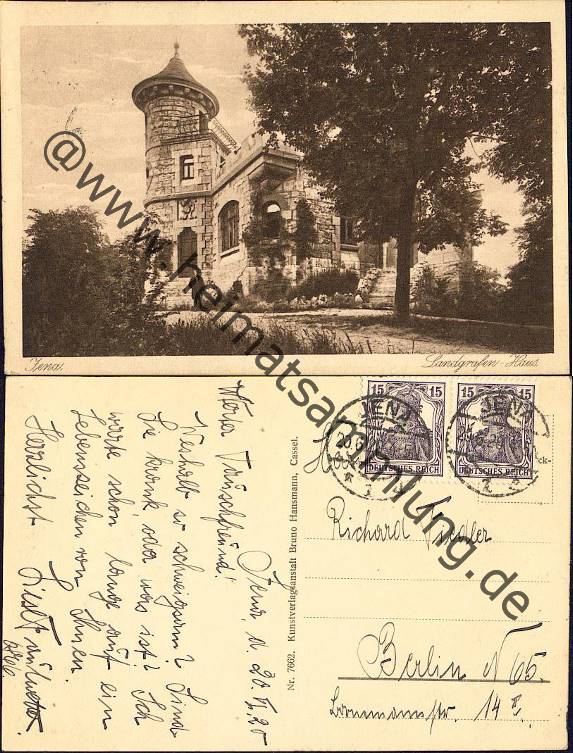 Jena.
Landgrafen-Haus
@www.heimatsammlung.de
Jena, d. 20. VI. 20
Werter Tauschfreund!
Weshalb so schweigsam? Sind
Sie krank oder was ist? Ich
warte schon lange auf ein
Lebenszeichen von Ihnen.
Herzlichst
Nr. 7662. Kunstverlagsanstalt Bruno Hansmann, Cassel.
15 15
DEUTSCHES REICH
15 15
DEUTSCHES REICH
JENA
JENA
Richard
Berlin N 65.
14 II.